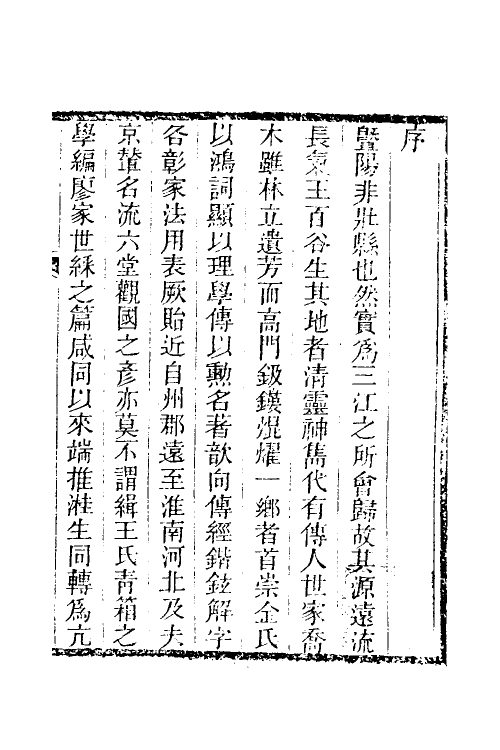 序
暨陽非壯縣也然實為三江之所會歸故其源遠流
長氣王百谷生其地者清靈神雋代有傳人世家喬
木雖林立遺芳而高門鈒鏤焜耀一鄉者首崇金氏
以鴻詞顯以理學傳以勳名著歆向傳經鍇鉉解字
各彰家法用表厥貽近自州郡遠至淮南河北及夫
京輦名流六堂觀國之彥亦莫不謂緝王氏青箱之
學編廖家世綵之篇咸同以來端推溎生同轉為亢